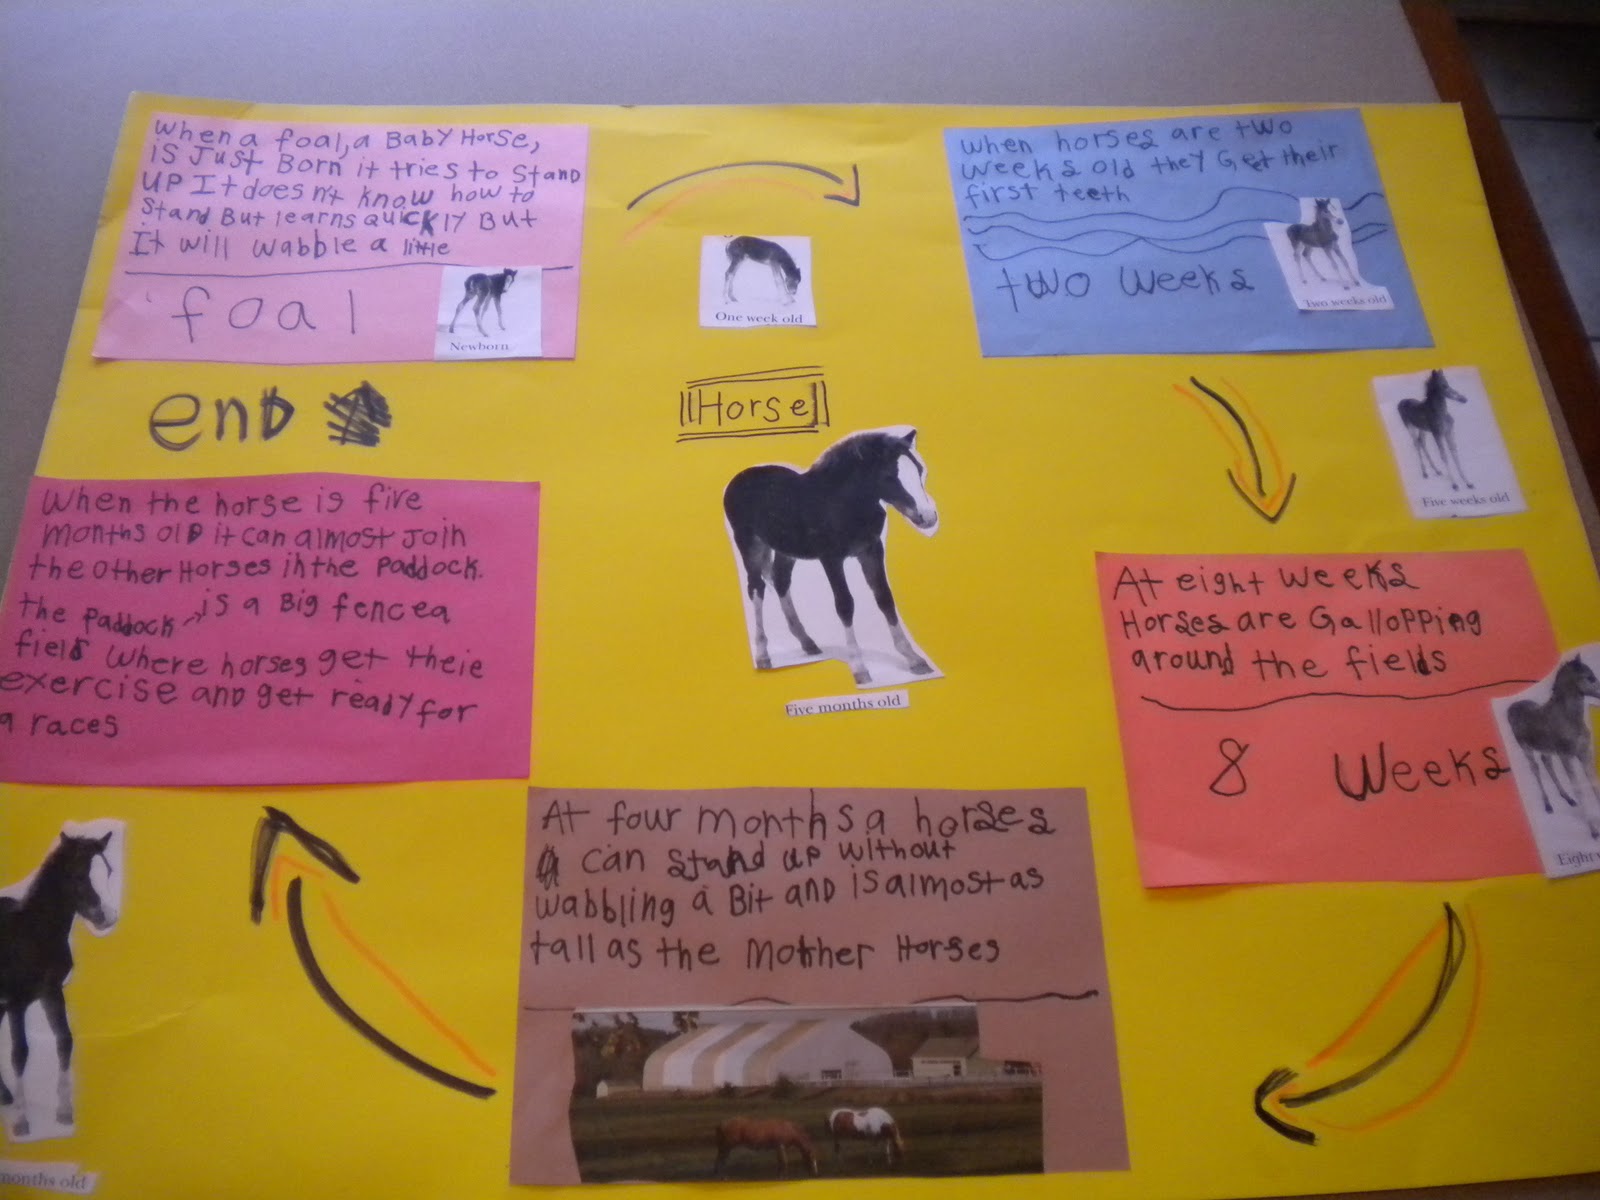 When a foal, a Baby Horse,
is Just Born it tries to Stand
UP It doesn't know how to
Stand But learns quickly But
It will wabble a little
foal
Newborn
One week old
When horses are two
weeks old they Get their
first teeth
two weeks
Two weeks old
Five weeks old
At eight weeks
Horses are Gallopping
around the fields
8 Weeks
Eight
At four months a horses
can stand up without
wabbling a Bit and is almost as
tall as the Mother Horses
When the horse is five
months old it can almost Join
the other Horses in the Paddock.
the Paddock is a Big fencea
field where horses get theie
exercise and get ready for
a races
months old
END
Horse
Five months old